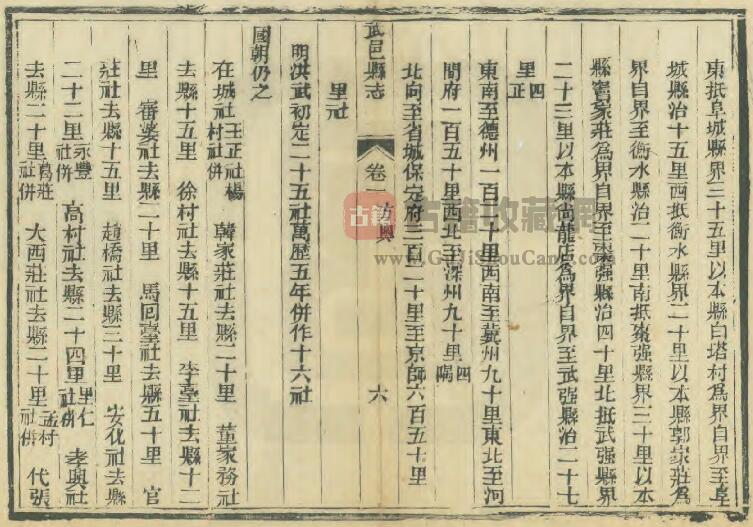 東抵阜城縣界三十五里以本縣白塔村爲界自界至阜
城縣治十五里西抵衡水縣界二十里以本縣郭家莊爲
界自界至衡水縣治二十里南抵棗强縣界三十里以本
縣竇家莊爲界自界至棗强縣治四十里北抵武强縣界
二十三里以本縣尚龍店爲界自界至武强縣治二十七
里四正
東南至德州一百二十里西南至冀州九十里東北至河
間府一百五十里西北至深州九十里四隅
北向至省城保定府三百二十里至京師六百五十里
武邑縣志 卷一 方輿 六
里社
明洪武初定二十五社萬歷五年併作十六社
國朝仍之
在城社王正社楊村社併 韓家莊社去縣二十里 董家務社
去縣十五里 徐村社去縣十五里 李臺社去縣十二
里 審婆社去縣二十里 馬回臺社去縣五十里 官
莊社去縣十五里 趙橋社去縣三十里 安化社去縣
二十二里永豐社併 高村社去縣二十四里里仁社併 孝輿社
去縣二十里萬莊社併 大西莊社去縣二十里孟村社併 代張
古籍 古籍收藏网
www.GuJiShouCang.com